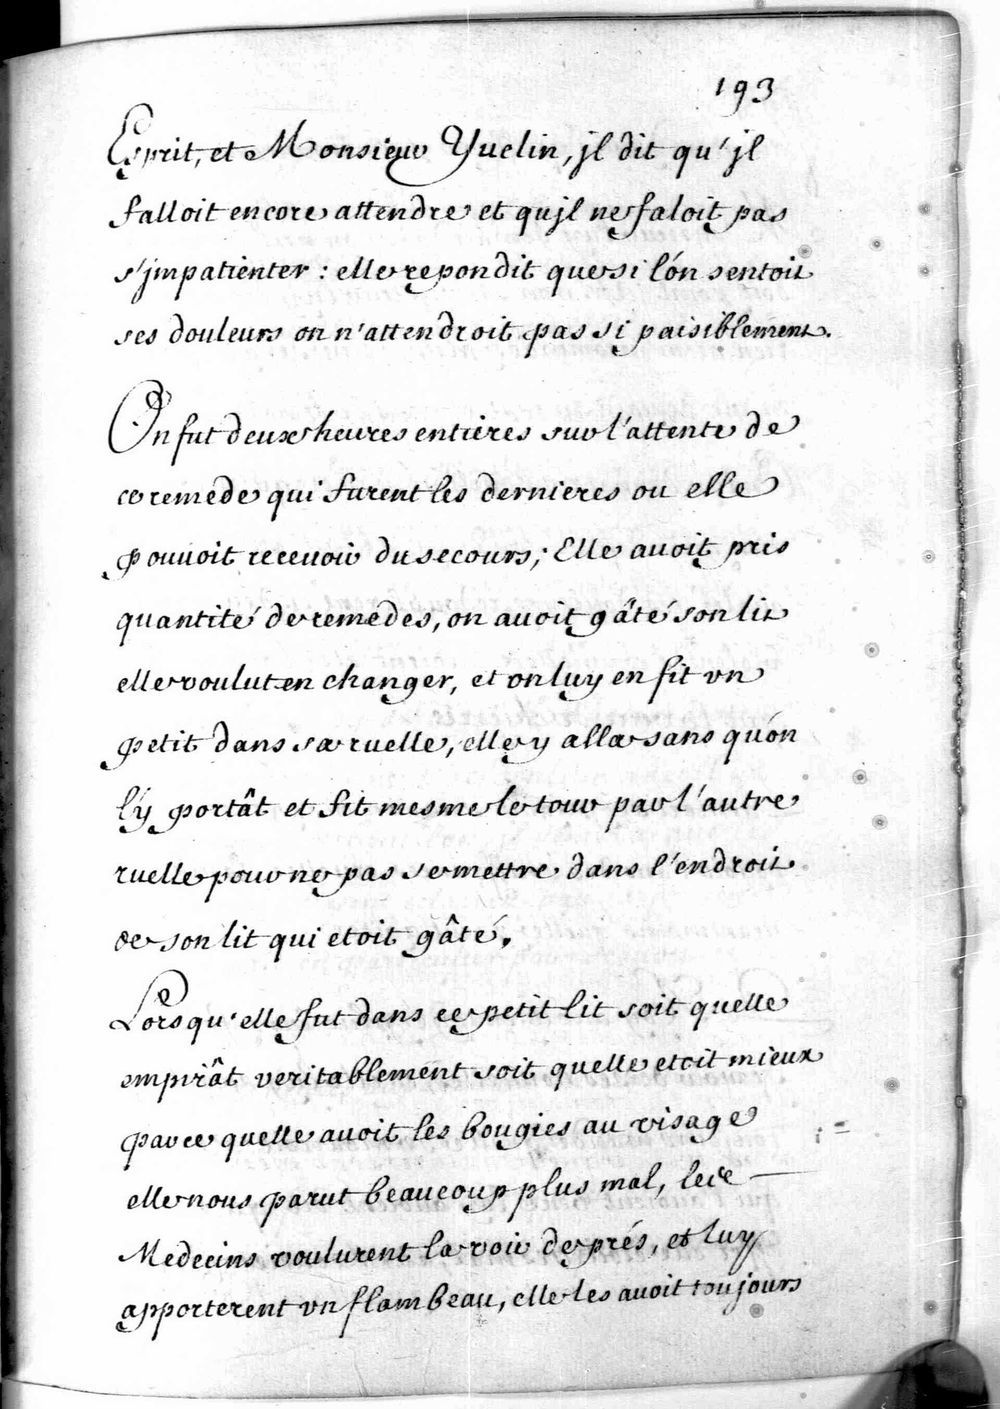 193
Esprit, et Monsieur Yuelin, jl dit qu'jl
falloit encore attendre et qujl ne faloit pas
s'jmpatienter : elle repondit que si l'on sentoit
ses douleurs on n'attendroit pas si paisiblement.
On fut deux heures entieres sur l'attente de
ce remede qui furent les dernieres ou elle
pouuoit receuoir du secours; Elle auoit pris
quantité de remedes, on auoit gâté son lit
elle voulut en changer, et on luy en fit vn
petit dans sa ruelle, elle y alla sans qu'on
l'y portât et fit mesme le tour par l'autre
ruelle pour ne pas se mettre dans l'endroit
de son lit qui etoit gâté.
Lorsqu'elle fut dans ce petit lit soit quelle
empirât veritablement soit quelle etoit mieux
parce quelle auoit les bougies au visage
elle nous parut beaucoup plus mal, les
Medecins voulurent la voir de prés, et luy
apporterent vn flambeau, elle les auoit toujours